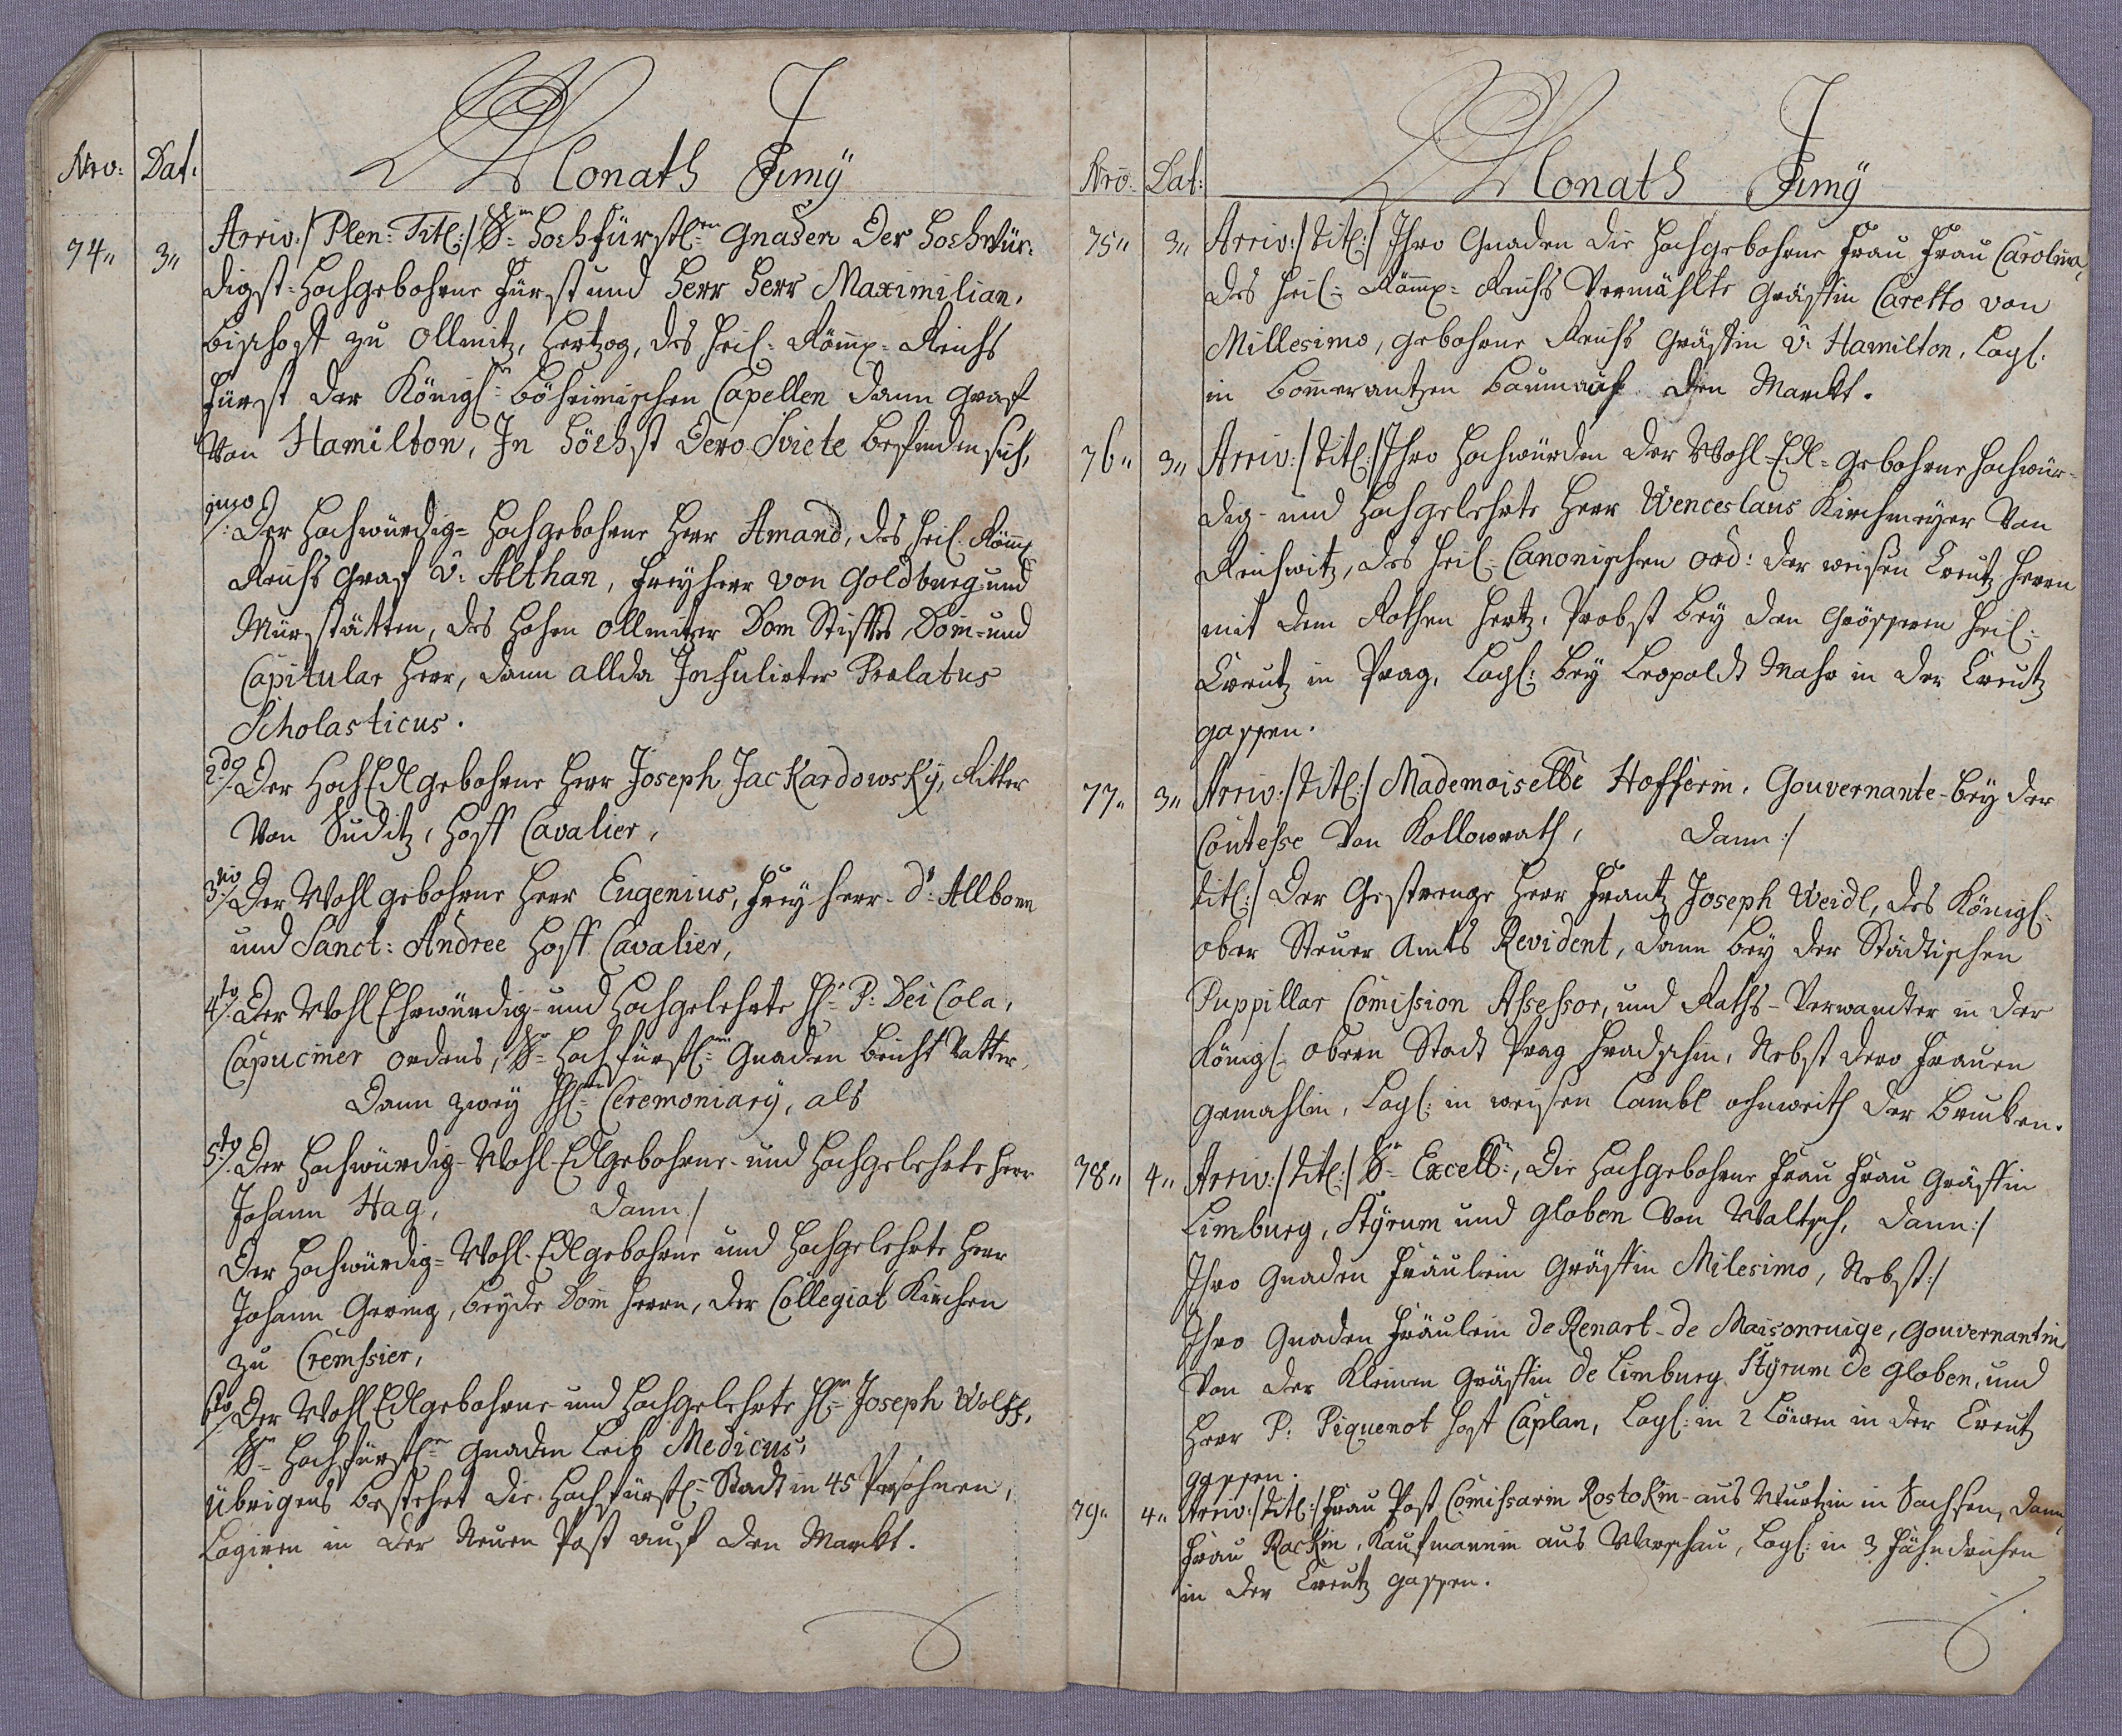 Nro: Dat: Monath Juny
74„ 3„ Arriv:/ Plen: Titl:/ Sr Hochfürstl:en Gnaden Der Hochwür-
digst-Hochgebohrne Fürst und Herr Herr Maximilian,
Bischoff zu Ollmitz, Hertzog, des Heil: Römi: Reichs
Fürst der Königl:n Böheimischen Capellen dann Graff
Von Hamilton, In Höchst Dero Sviete befinden sich,
1mo/: Der Hochwürdig- Hochgebohrne Herr Amand, des Heil. Römi:
Reichs Graf v: Althan, Freyherr von Goldburg und
Mürstätten, des Hohen Ollmitzer Dom Stiffts, Dom- und
Capitular Herr, dann allda Infulirter Prælatus
Scholasticus.
2do/. Der HochEdlgebohrne Herr Joseph Jackardowsky, Ritter
Von Suditz, Hoff Cavalier,
3tio/. Der Wohlgebohrne Herr Eugenius, Freyherr d': Allborn
und Sanct: Andree Hoff Cavalier,
4to/. Der Wohl Ehrwürdig- und Hochgelehrte H: P: Dei Cola,
Capuciner Ordens, Sr Hochfürstl:en Gnaden Beicht Vatter,
Dann zwey HH:en Ceremoniary, als
5to/. Der Hochwürdig-Wohl-Edlgebohrne- und Hochgelehrte Herr
Johann Hag, Dann:/
Der Hochwürdig-Wohl-Edlgebohrne und Hochgelehrte Herr
Johann Gering, beyde Dom Herrn, der Collegiat Kirchen
zu Cremsier,
6to/ Der Wohl Edlgebohrne und Hochgelehrte H: Joseph Wolff,
Sr Hochfürstl:en Gnaden Leib Medicus,
Übrigens bestehet die Hochfürstl: Stadt in 45 Persohnen,
Logiren in der Neuen Post auf den Marckt.
Nro. Dat: Monath Juny
75„ 3„ Arriv:/ Titl:/ Ihro Gnaden die Hochgebohrne Frau Frau Carolina,
des Heil: Römi: Reichs Vermählte Gräffin Caretto von
Millesimo, gebohrne Reichs Gräffin v: Hamilton, Logl:
in Pomerantzen Baum auf den Marckt.
76„ 3„ Arriv:/ Titl:/ Ihro Hochwürden der Wohl-Edl-gebohrne Hochwür-
dig- und Hochgelehrte Herr Wenceslaus Kirchmeyer Von
Reichwitz, des Heil: Canonischen Ord: der weisen Creutz Herrn
mit dem Rothen Hertz, Probst bey den Grössern Heil:
Creutz in Prag, Logl: bey Leopoldt Mahr in der Creutz
gassen.
77„ 3„ Arriv:/ Titl:/ Mademoiselle Hofferin, Gouvernante bey der
Contesse Von Kollowrath, Dann:/
Titl:/ Der Gestrenge Herr Frantz Joseph Weidl, des Königl:
ober Steuer Amts Revident, dann bey der Städtischen
Puppillar Comission Assessor, und Raths-Verwandter in der
Königl: obern Stadt Prag Hradschin, Nebst dero Frauen
Gemahlin, Logl: in weisen Lambl ohnweith der Brucken.
78„ 4„ Arriv:/ Titl:/ Sr Excell:, Die Hochgebohrne Frau Frau Gräffin
Limburg, Styrum und Globen Von Waltsch, Dann:/
Ihro Gnaden Fräulein Gräffin Milesimo, Nebst:/
Ihro Gnaden Fräulein de Renart-de Maisonruige, Gouvernantin
Von der Kleinen Gräffin de Limburg Styrum de Globen, und
Herr P: Piquenot Hoff Caplan, Logl: in 2 Löwen in der Creutz
gassen.
79„ 4„ Arriv:/ Titl:/ Frau Post Comissarin Rostokin aus Wurtzin in Sachsen, Dann,
Frau Rackin, Kaufmannin aus Warschau, Logl: in 3 Fähndrichen
in der Creutz gassen.